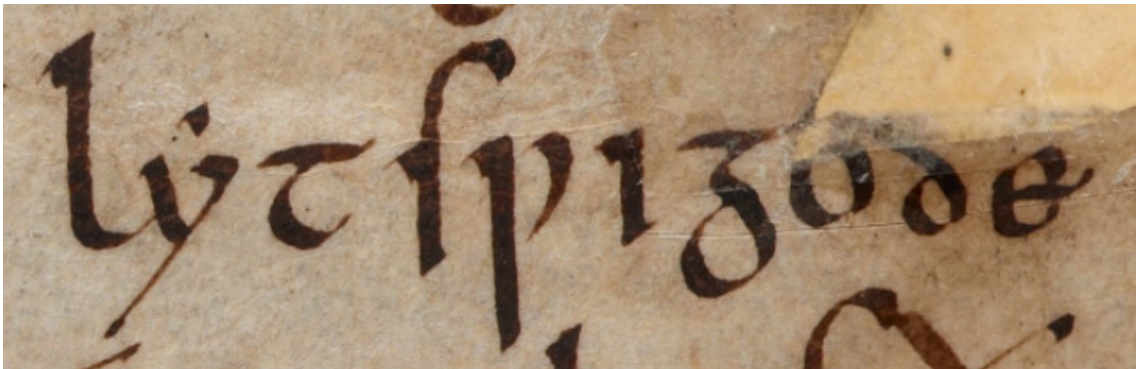 lẏt sƿigode